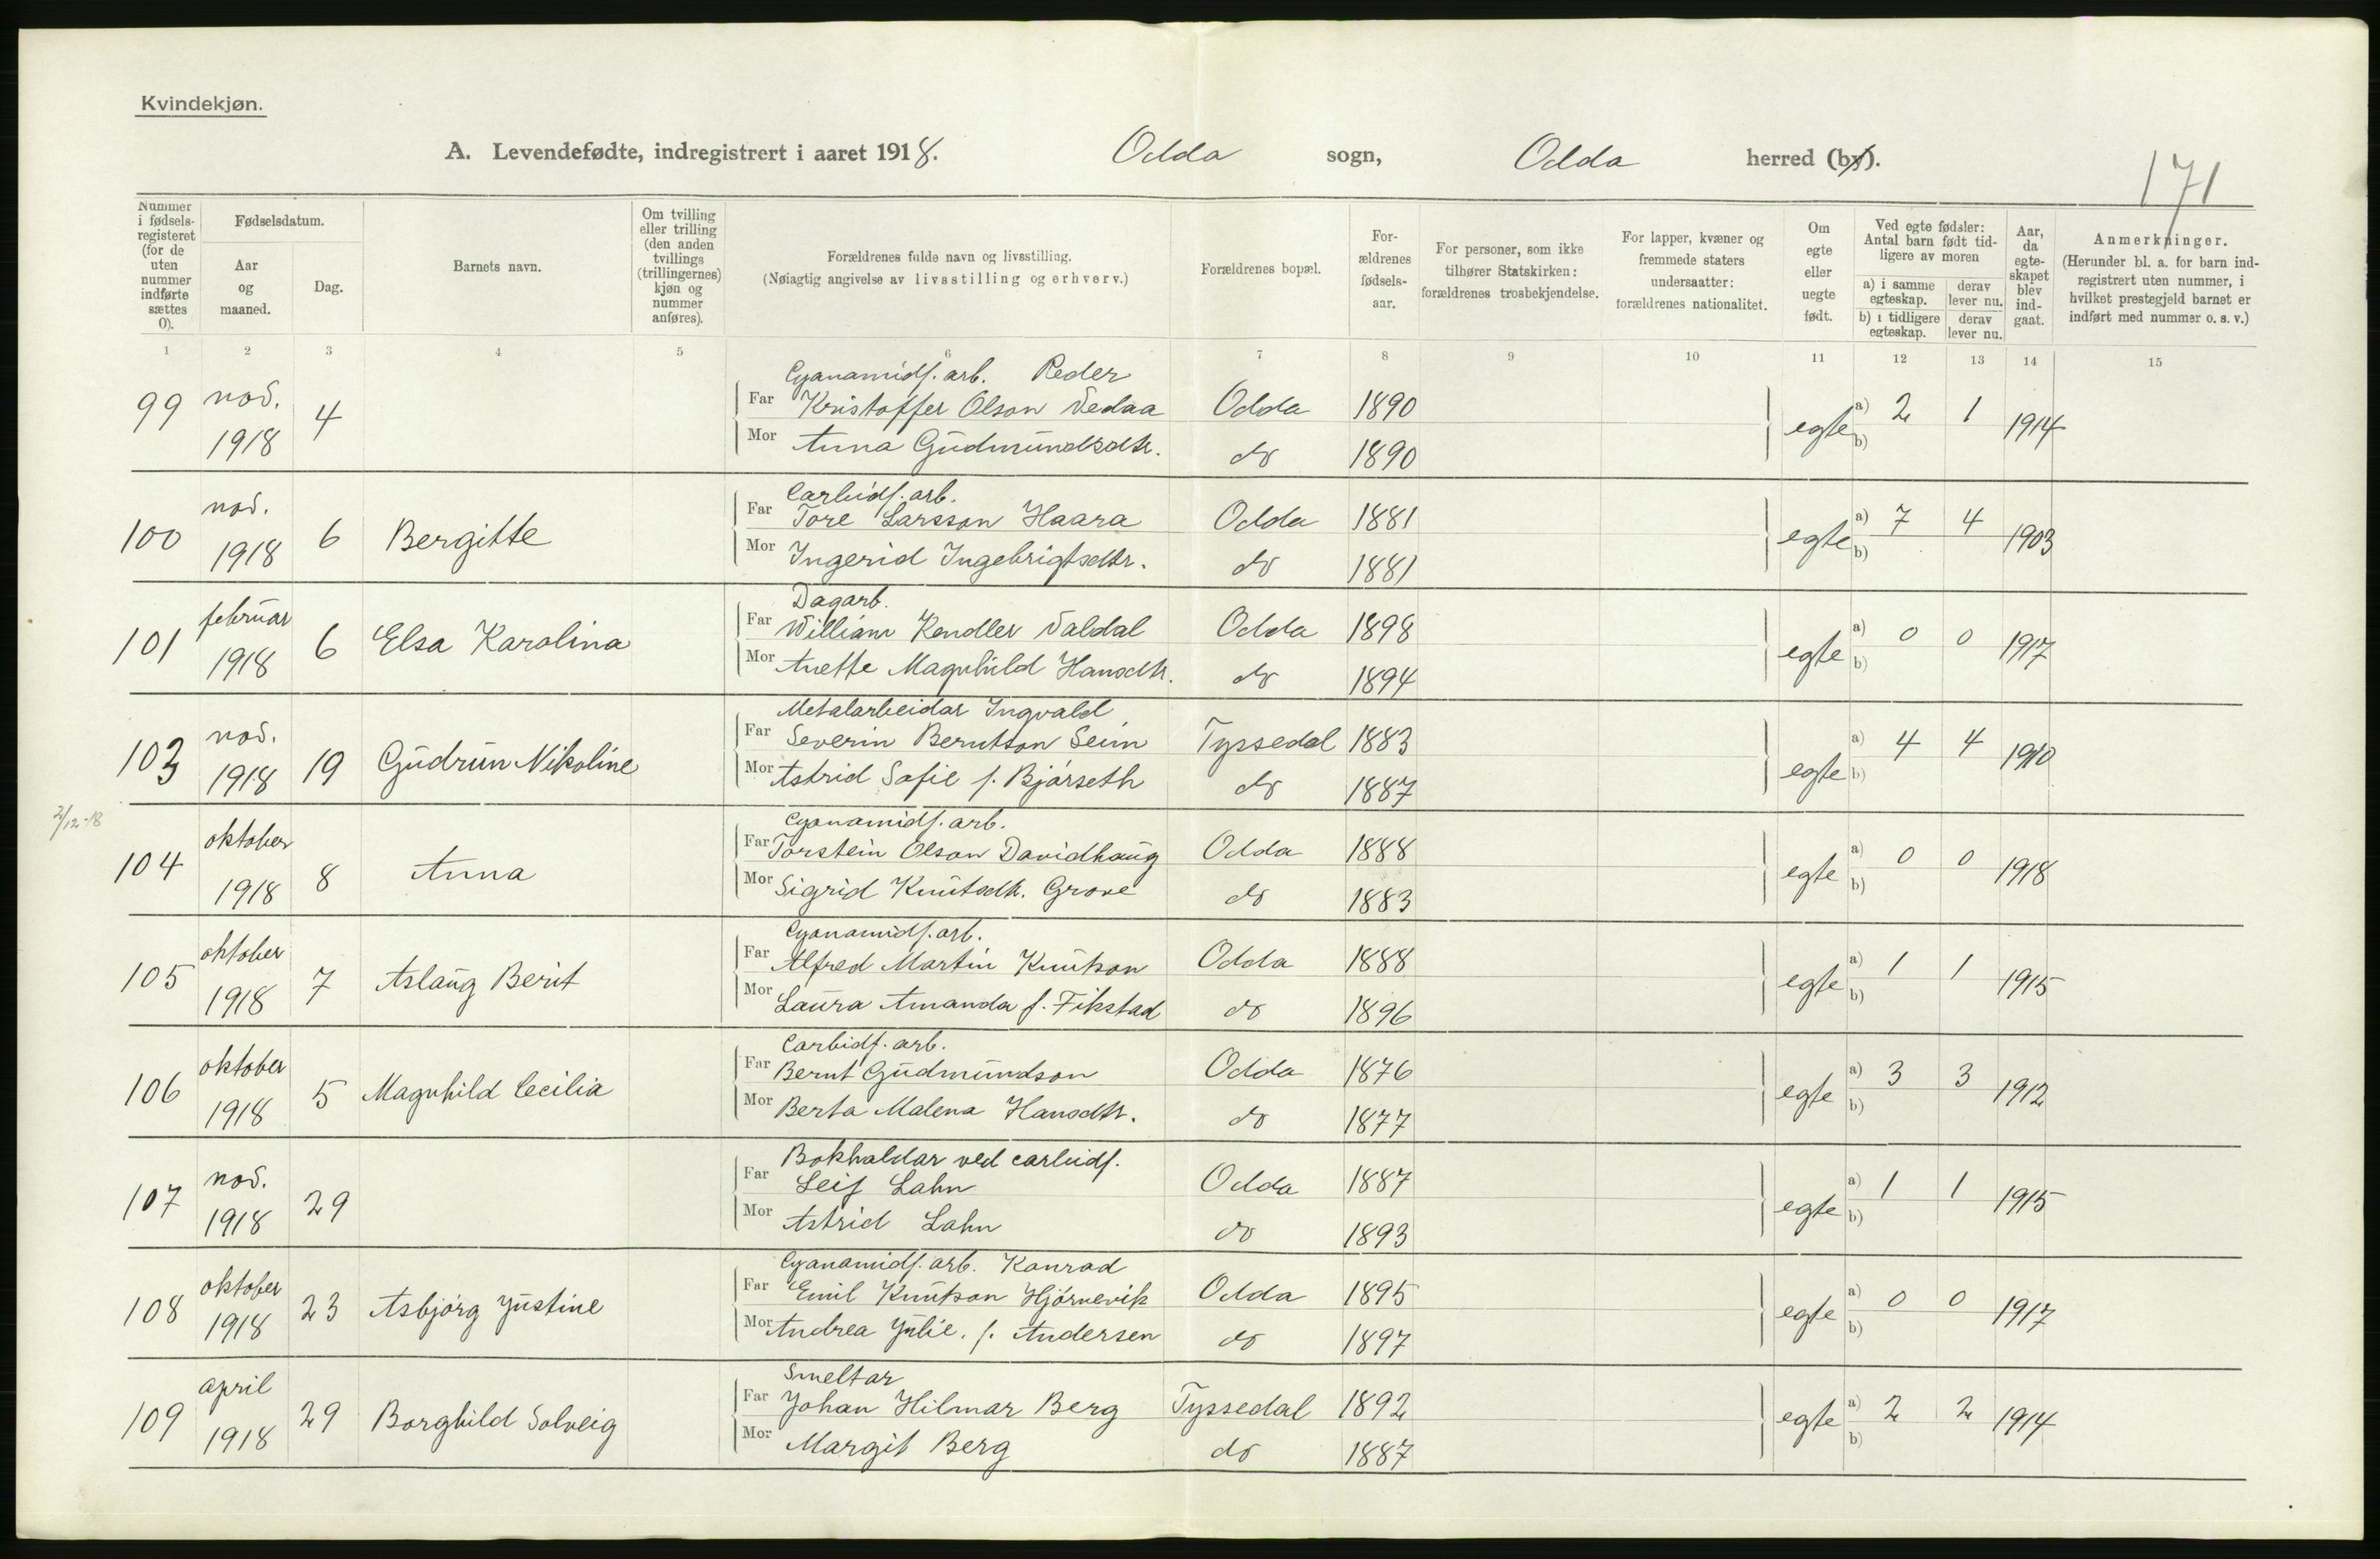 Kvindekjøn.
A. Levendefødte, indregistrert i aaret 1918. Odda sogn, Odda herred (by).
171
Nummer i fødsels-registeret (for de uten nummer indførte sættes 0).
Fødselsdatum.
Aar og maaned.
Dag.
Barnets navn.
Om tvilling eller trilling (den anden tvillings (trillingernes) kjøn og nummer anføres).
Forældrenes fulde navn og livsstilling.
(Nøiagtig angivelse av livsstilling og erhverv.)
Forældrenes bopæl.
For-ældrenes fødsels-aar.
For personer, som ikke tilhører Statskirken: forældrenes trosbekjendelse.
For lapper, kvæner og fremmede staters undersaatter: forældrenes nationalitet.
Om egte eller uegte født.
Ved egte fødsler: Antal barn født tid-ligere av moren
a) i samme egteskap.
derav lever nu.
b) i tidligere egteskap.
derav lever nu.
Aar, da egte-skapet blev ind-gaat.
Anmerkninger.
(Herunder bl. a. for barn ind-registrert uten nummer, i hvilket prestegjeld barnet er indført med nummer o. s. v.)
1 2 3 4 5 6 7 8 9 10 11 12 13 14 15
Cyanamidf. arb. Peder
99 nov. 1918 4 Far Kristoffer Olson Vedaa Odda 1890 egte a) 2 1 1914
Mor Anna Gudmundsdtr. do 1890 b)
Carbidf. arb.
100 nov. 1918 6 Bergitte Far Tore Larsson Haara Odda 1881 egte a) 7 4 1903
Mor Ingerid Ingebrigtsdtr. do 1881 b)
Dagarb.
101 februar 1918 6 Elsa Karolina Far William Kendler Valdal Odda 1898 egte a) 0 0 1917
Mor Anette Magnhild Hansdtr. do 1894 b)
Metalarbeidar Ingvald
103 nov. 1918 19 Gudrun Nikoline Far Severin Berntson Seim Tyssedal 1883 egte a) 4 4 1910
Mor Astrid Sofie f. Bjørseth do 1887 b)
2/12-18
Cyanamidf. arb.
104 oktober 1918 8 Anna Far Torstein Olson Davidhaug Odda 1888 egte a) 0 0 1918
Mor Sigrid Knutsdtr. Grove do 1883 b)
Cyanamidf. arb.
105 oktober 1918 7 Aslaug Berit Far Alfred Martin Knutson Odda 1888 egte a) 1 1 1915
Mor Laura Amanda f. Fikstad do 1896 b)
Carbidf. arb.
106 oktober 1918 5 Magnhild Cecilia Far Bernt Gudmundson Odda 1876 egte a) 3 3 1912
Mor Berta Malena Hansdtr. do 1877 b)
Bokhaldar ved carbidf.
107 nov. 1918 29 Far Leif Lahn Odda 1887 egte a) 1 1 1915
Mor Astrid Lahn do 1893 b)
Cyanamidf. arb. Konrad
108 oktober 1918 23 Asbjørg Justine Far Emil Knutson Hjørnevik Odda 1895 egte a) 0 0 1917
Mor Andrea Julie. f. Andersen do 1897 b)
Smeltar
109 april 1918 29 Borghild Solveig Far Johan Hilmar Berg Tyssedal 1892 egte a) 2 2 1914
Mor Margit Berg do 1887 b)